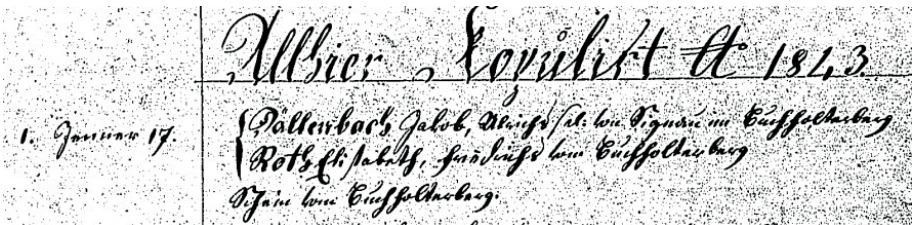 Allhier Copuliert Aº 1843.
1. Jenner 17. Dällenbach Jakob, Ulrichs sel. von Signau im Buchholterberg
Roth Elisabeth, Friedrichs von Buchholterberg
Schein von Buchholterberg.